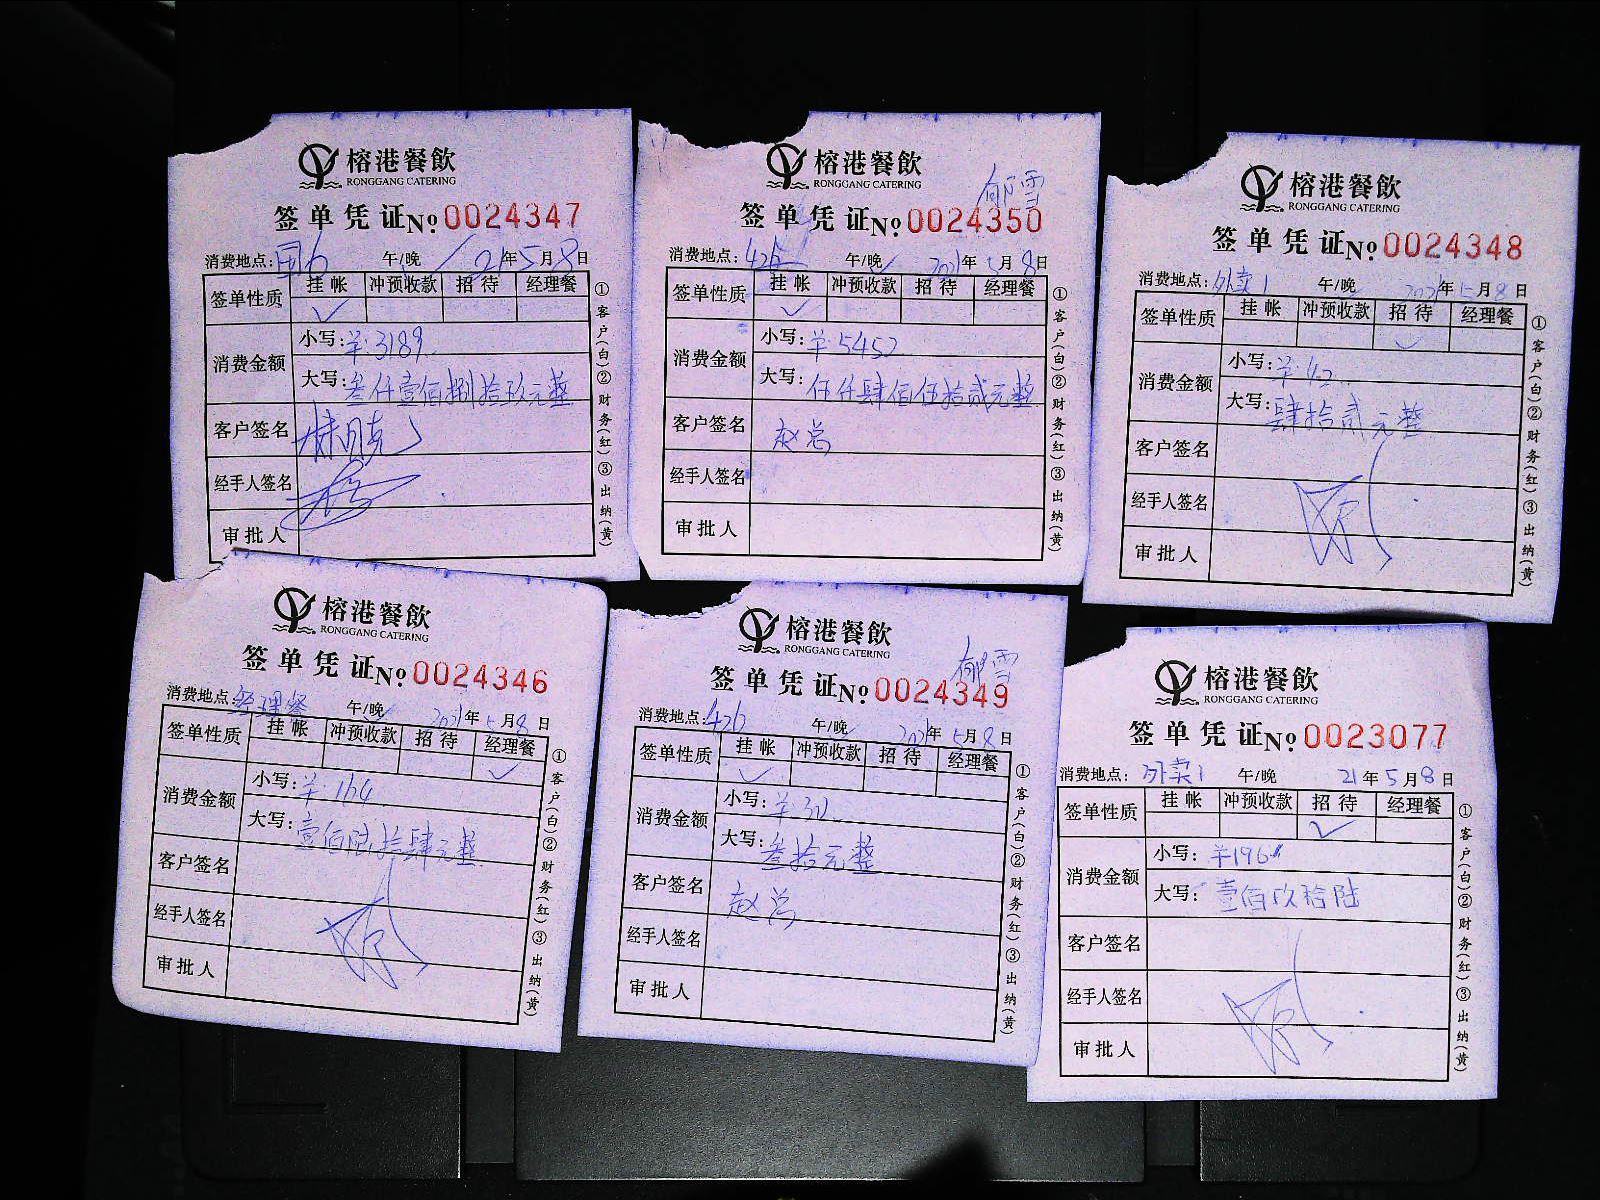 榕港餐飲
RONGGANG CATERING
签单凭证 No 0024347
消费地点: 国6 午/晚 21年5月8日
签单性质 挂帐 冲预收款 招待 经理餐
✓
消费金额 小写: 羊:3189
大写: 叁仟壹佰捌拾玖元整
客户签名
经手人签名
审批人
①客户(白)②财务(红)③出纳(黄)
榕港餐飲
RONGGANG CATERING
郁雪
签单凭证 No 0024350
消费地点: 426 午/晚 2021年5月8日
签单性质 挂帐 冲预收款 招待 经理餐
✓
消费金额 小写: 羊:5452
大写: 伍仟肆佰伍拾贰元整
客户签名 赵总
经手人签名
审批人
①客户(白)②财务(红)③出纳(黄)
榕港餐飲
RONGGANG CATERING
签单凭证 No 0024348
消费地点: 外卖1 午/晚 2021年5月8日
签单性质 挂帐 冲预收款 招待 经理餐
✓
消费金额 小写: 羊:42
大写: 肆拾贰元整
客户签名
经手人签名
审批人
①客户(白)②财务(红)③出纳(黄)
榕港餐飲
RONGGANG CATERING
签单凭证 No 0024346
消费地点: 经理餐 午/晚 2021年5月8日
签单性质 挂帐 冲预收款 招待 经理餐
✓
消费金额 小写: 羊:164
大写: 壹佰陆拾肆元整
客户签名
经手人签名
审批人
①客户(白)②财务(红)③出纳(黄)
榕港餐飲
RONGGANG CATERING
郁雪
签单凭证 No 0024349
消费地点: 426 午/晚 2021年5月8日
签单性质 挂帐 冲预收款 招待 经理餐
✓
消费金额 小写: 羊:30
大写: 叁拾元整
客户签名 赵总
经手人签名
审批人
①客户(白)②财务(红)③出纳(黄)
榕港餐飲
RONGGANG CATERING
签单凭证 No 0023077
消费地点: 外卖1 午/晚 21年5月8日
签单性质 挂帐 冲预收款 招待 经理餐
✓
消费金额 小写: 羊196
大写: 壹佰玖拾陆
客户签名
经手人签名
审批人
①客户(白)②财务(红)③出纳(黄)